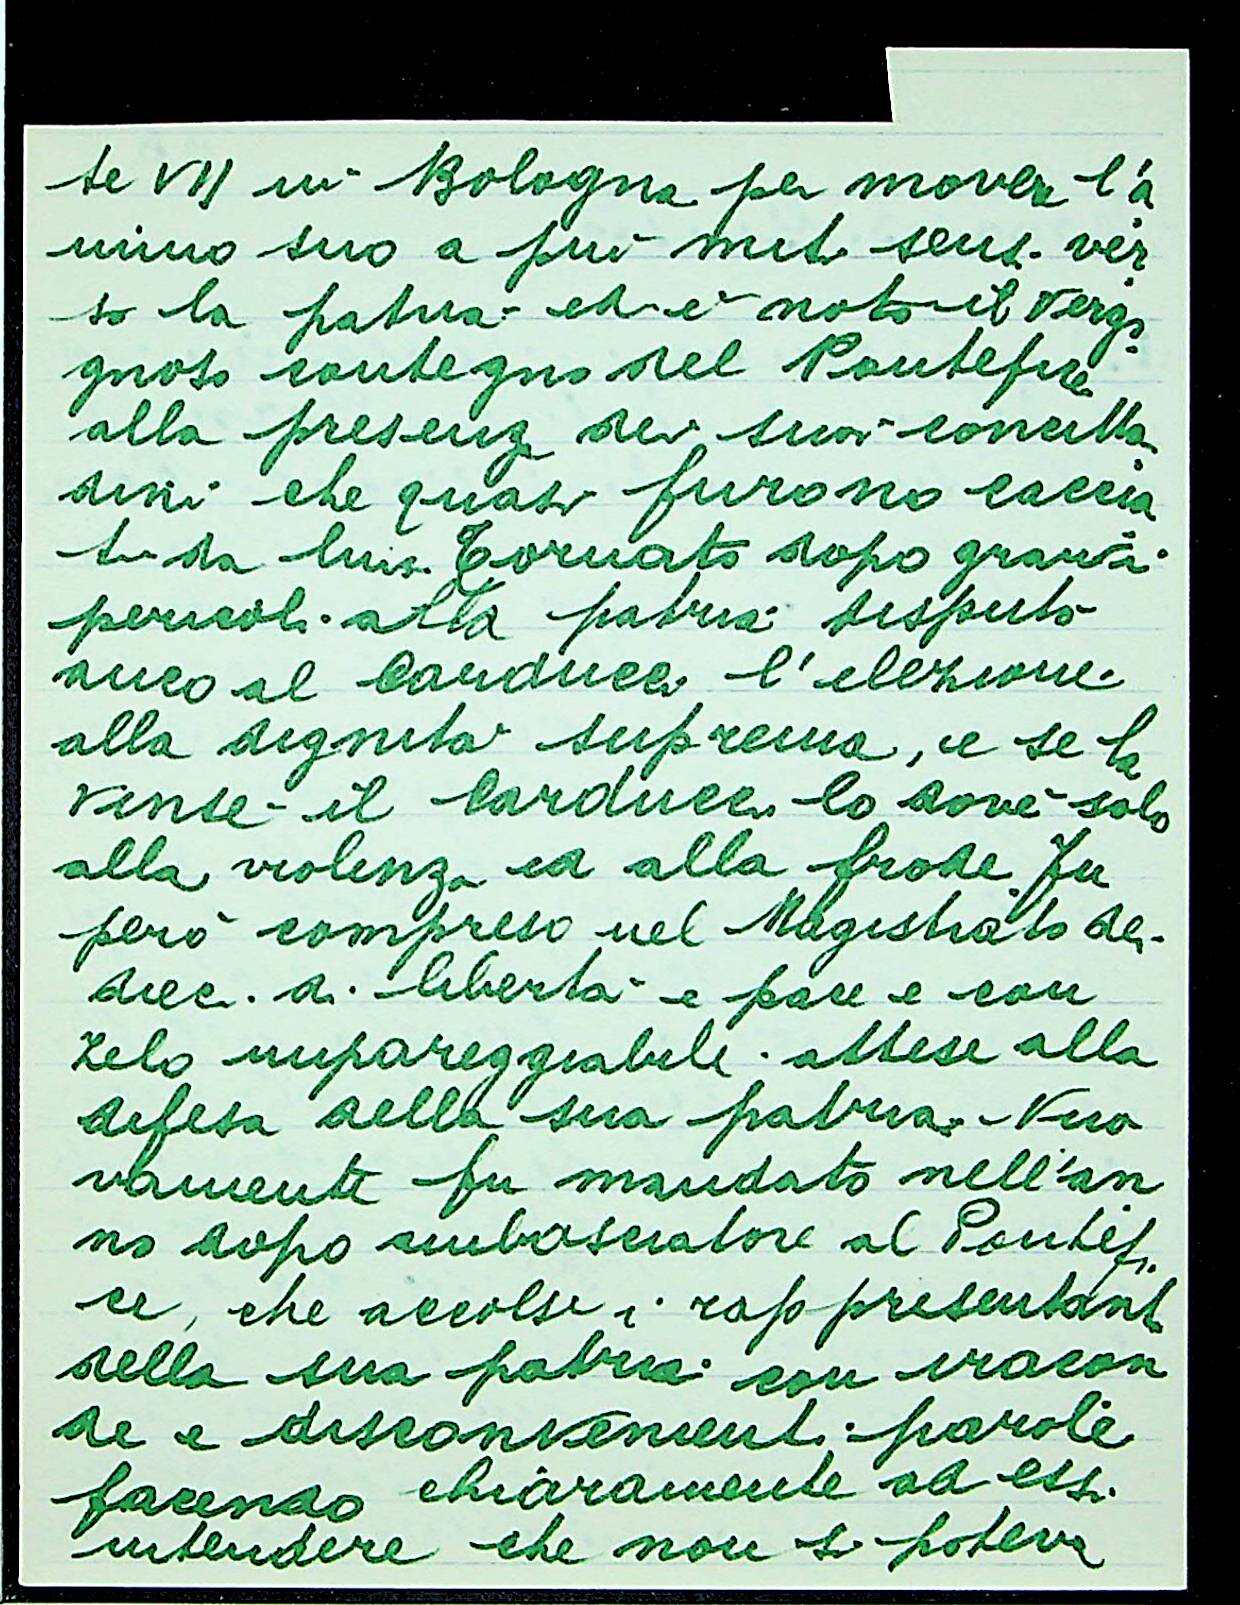 te VII in Bologna per mover l'a
nimo suo a più miti sensi ver
so la patria ed è noto il vergo
gnoso contegno del Pontefice
alla presenza dei suoi concitta
dini che quasi furono caccia
ti da lui. Tornato dopo gravi
pericoli alla patria disputò
anco al Carducci l'elezione
alla dignità suprema, e se la
vinse il Carducci lo dovè solo
alla violenza ed alla frode. Fu
però compreso nel Magistrato dei
dieci di libertà e pace e con
zelo impareggiabile attese alla
difesa della sua patria. Nuo
vamente fu mandato nell'an
no dopo ambasciatore al Pontefi
ce, che accolse i rappresentanti
della sua patria con iracon
de e disconvenienti parole
facendo chiaramente ad essi
intendere che non si poteva